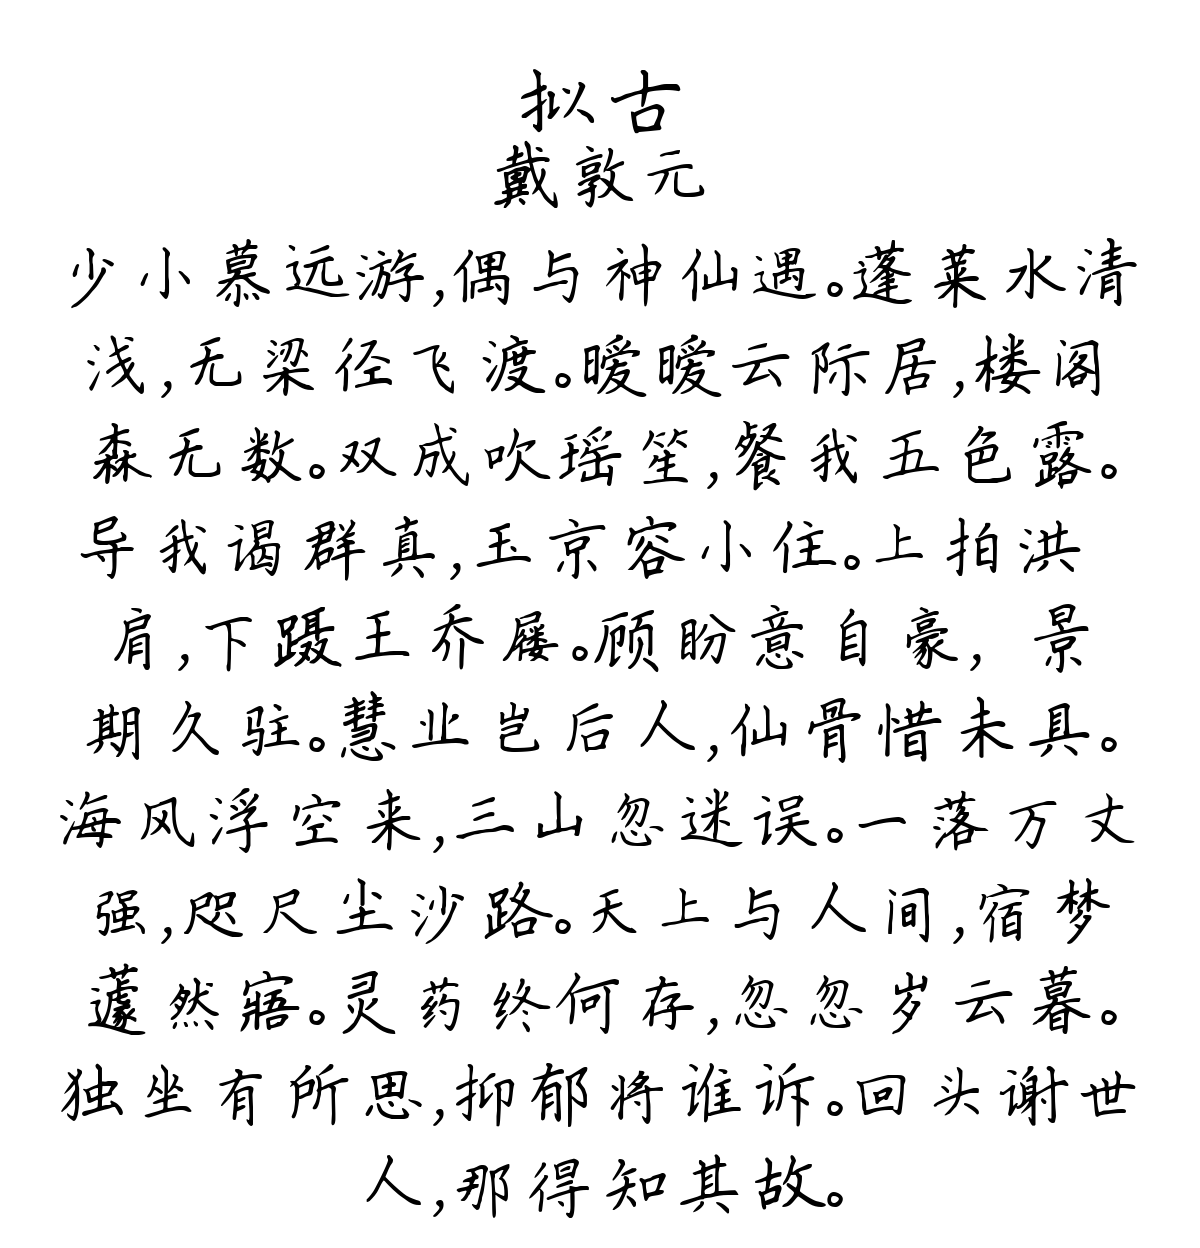 拟古
戴敦元
少小慕远游,偶与神仙遇。蓬莱水清
浅,无梁径飞渡。暧暧云际居,楼阁
森无数。双成吹瑶笙,餐我五色露。
导我谒群真,玉京容小住。上拍洪
肩,下蹑王乔屦。顾盼意自豪,景
期久驻。慧业岂后人,仙骨惜未具。
海风浮空来,三山忽迷误。一落万丈
强,咫尺尘沙路。天上与人间,宿梦
蘧然寤。灵药终何存,忽忽岁云暮。
独坐有所思,抑郁将谁诉。回头谢世
人,那得知其故。